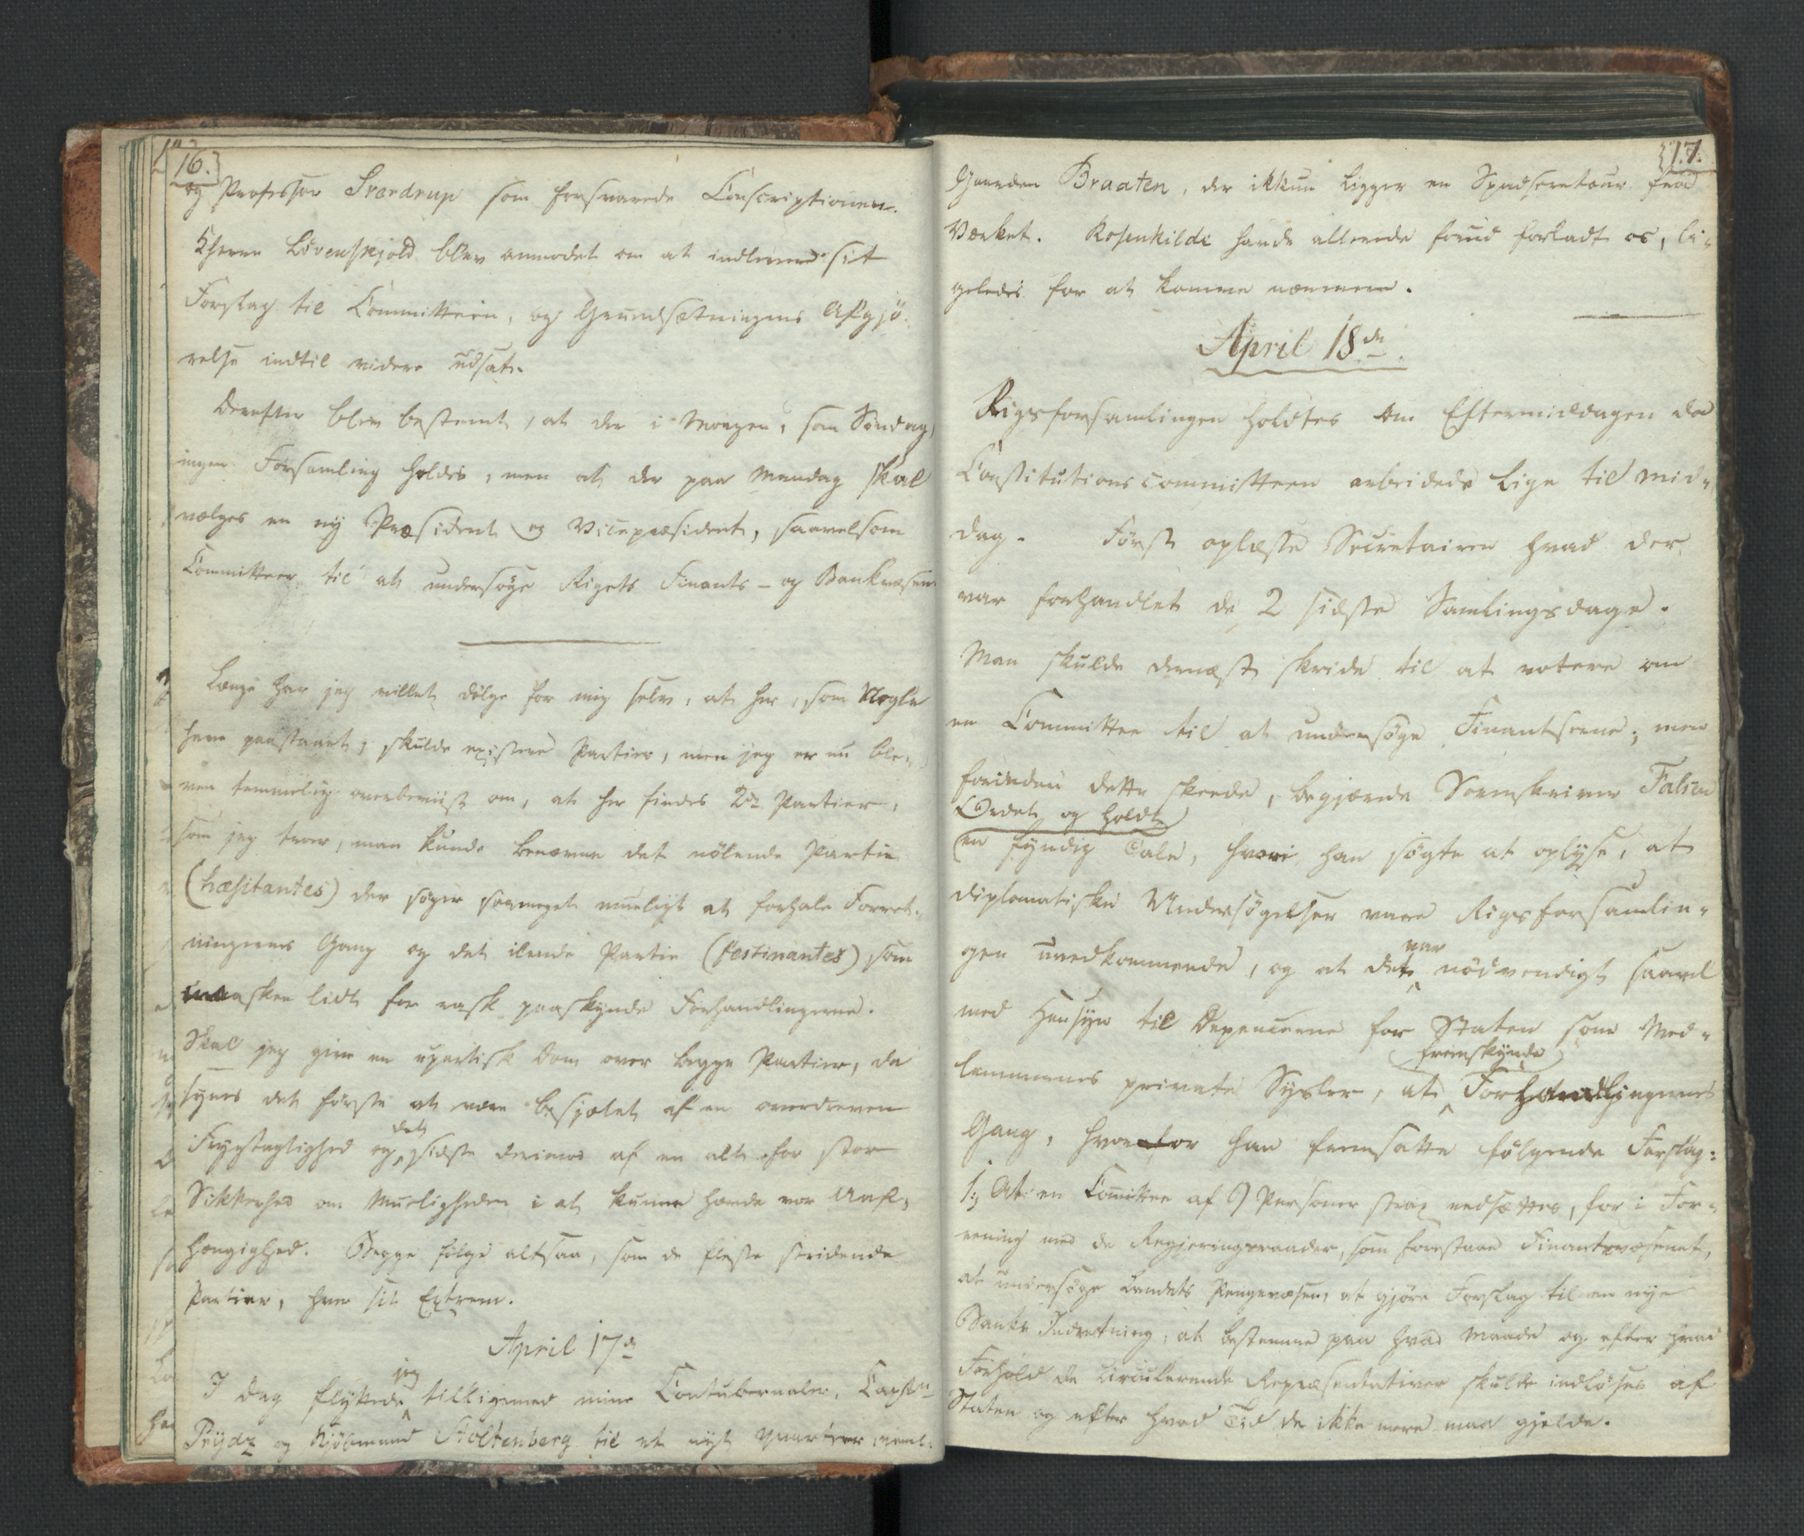 16.
og Professor Sverdrup som forsvarede Conscriptionen.
Kherre Lövenskjold blev anmodet om at indlevere sit
Forslag til Committeen, og Grundsætningens Afgjö-
relse indtil videre udsat.
Derefter blev bestemt, at der i Morgen, som Söndag,
ingen Forsamling holdes, men at der paa Mandag skal
vælges en ny Præsident og Vicepræsident, saavelsom
Committeer til at undersöge Rigets Finants- og Bankvæsen
Længe har jeg villet dölge for mig selv, at her, som Nogle
have paastaaet, skulde existere Partier, men jeg er nu ble-
ven temmelig overbeviist om, at her findes 2de Partier,
som jeg troer, man kunde benævne det nölende Partie
(hæsitantes) der söger saameget mueligt at forhale Forret-
ningernes Gang og det ilende Partie (festinantes) som
maaskee lidt for rask paaskynde Forhandlingerne.
Skal jeg give en upartisk Dom over begge Partier, da
synes det förste at være besjælet af en overdreven
Frygtagtighed og det sidste derimod af en alt for stor
Sikkerhed om Mueligheden i at kunne hævde vor Uaf-
hængighed. Begge fölge altsaa, som de fleste stridende
Partier, hver sit Extrem.
April 17de
I Dag flyttede jeg tilligemed mine Contubernaler, Capt.
Prydz og Kjöbmand Stoltenberg til et nyt Quarteer, neml.
17.
Gaarden Braaten, der ikkun ligger en Spadseretour fra
Værket. Rosenkilde havde allerede forud forladt os, li-
geledes for at komme nærmere.
April 18de
Rigsforsamlingen holdtes om Eftermiddagen da
Constitutionscommitteen arbeidede lige til Mid-
dag. Först oplæste Secretairen hvad der
var forhandlet de 2 sidste Samlingsdage.
Man skulde dernæst skride til at votere om
en Committee til at undersöge Finantserne; men
forinden dette skeede, begjærede Sorenskriver Falsen
Ordet og holdt
en fyndig Tale, hvori han sögte at oplyse, at
diplomatiske Undersögelser vare Rigsforsamlin-
gen uvedkommende, og at det var nödvendigt saavel
med Hensyn til Depencerne for Staten som Med-
lemmernes private Sysler, at fremskynde Forhandlingernes
Gang, hvorfor han fremsatte fölgende Forslag:
1, At en Comittee af 9 Personer strax nedsættes, for i For-
eening med de Regjeringsraader, som forestaae Finantsvæsenet,
at undersöge Landets Pengevæsen, at gjöre Forslag til en nye
Banks Indretning, at bestemme paa hvad Maade og efter hvad
Forhold de circulerende Repræsentativer skulle indlöses af
Staten og efter hvad Tid de ikke mere maa gjelde.